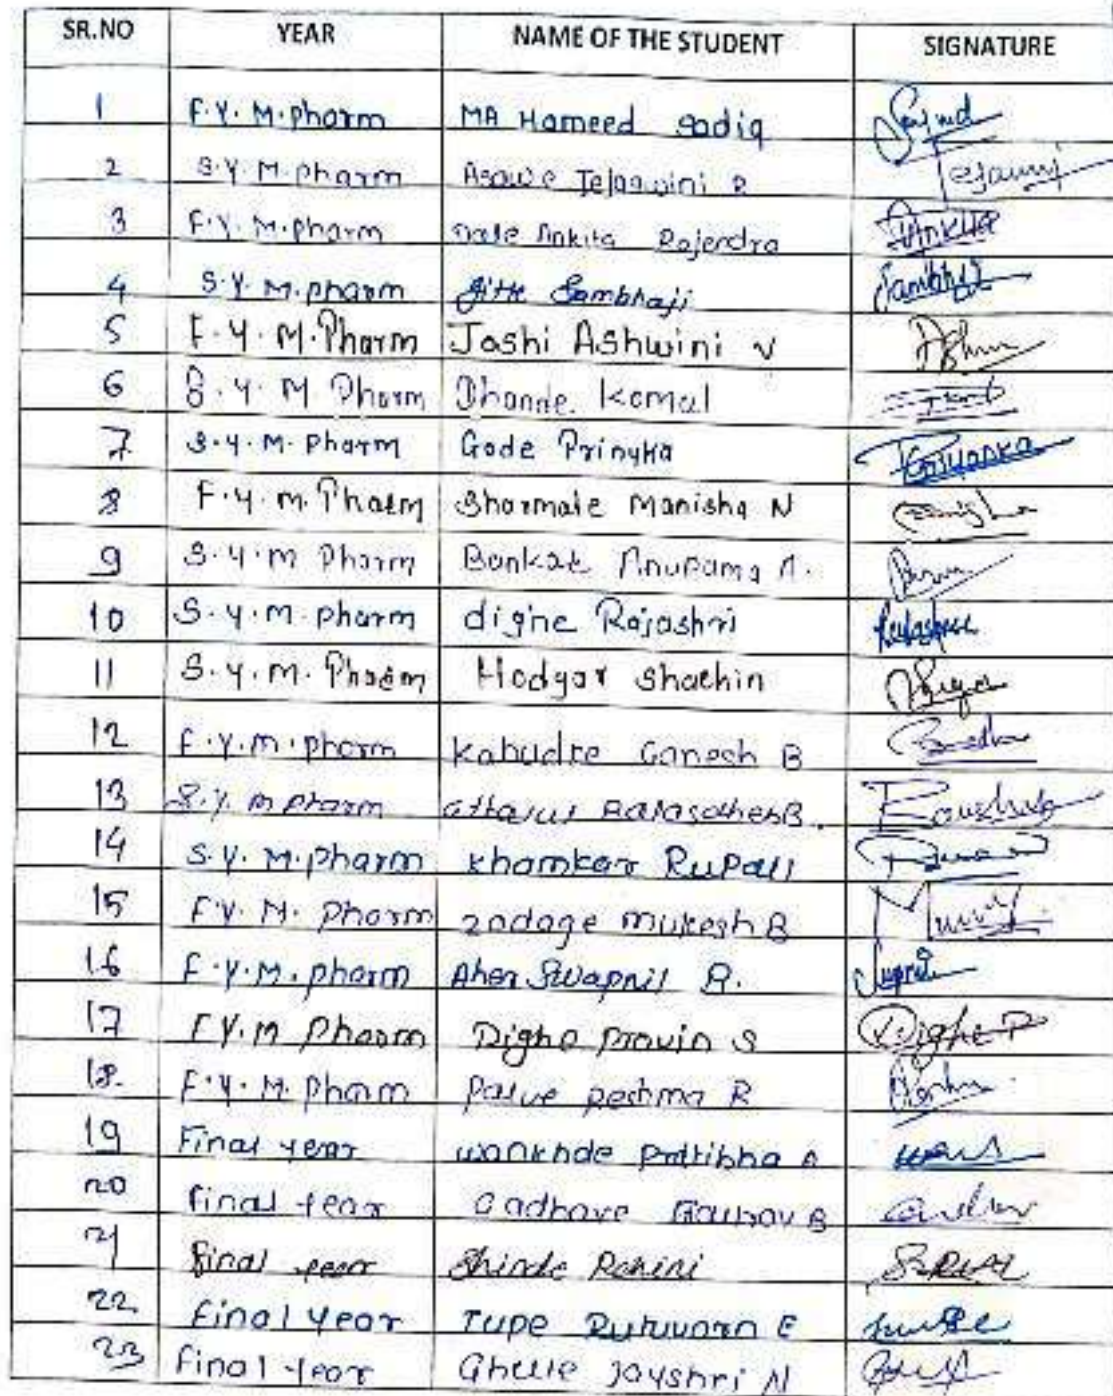 SR.NO YEAR NAME OF THE STUDENT SIGNATURE
1 F.Y. M.pharm MA Hameed sadiq Sajid
2 S.Y. M.pharm Asawe Tejaswini R Tejaswi
3 F.Y. M.pharm Dale Ankita Rajendra Ankita
4 S.Y. M.pharm Gitte Sambhaji Sambhaji
5 F.Y. M.Pharm Joshi Ashwini V
6 S.Y. M Pharm Dhande. Komal
7 S.Y. M. Pharm Gode Prinyka Priyanka
8 F.Y. m. Pharm Sharmale Manisha N
9 S.Y.M Pharm Bankat Anupama A.
10 S.Y.m. pharm dighe Rajashri
11 S.Y.m. Pharm Hodgar shachin
12 F.Y.m.pharm Kahudke Ganesh B
13 S.Y. m pharm
14 S.Y. M.pharm Khamkar Rupali
15 F.Y. M. pharm zadage mukesh B
16 F.Y.M. pharm Aher Swapnil R.
17 F.Y.m pharm Dighe pravin S Dighe P
18. F.Y.M. pharm palve reshma R
19 Final year wankhde prttibha A
20 final year Gadhave Gaurav B
21 final year Shinde Rohini
22 final year Tupe E
23 final year Ghule Jayshri N